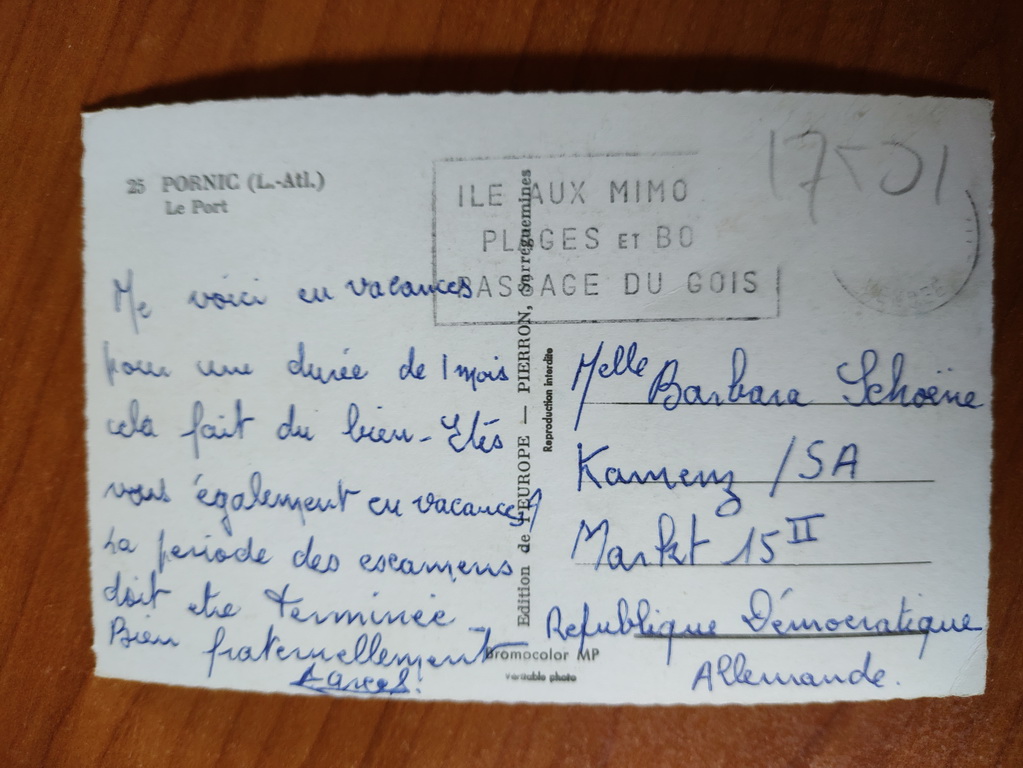 25 PORNIC (L.-Atl.)
Le Port
ILE AUX MIMO
PLAGES ET BO
PASSAGE DU GOIS
Me voici en vacances
pour une durée de 1 mois
cela fait du bien - Etés
vous également en vacances?
La periode des escamens
doit etre terminée -
Bien fraternellement
Edition de l'EUROPE — PIERRON, Sarreguemines
Reproduction interdite
Bromocolor MP
véritable photo
Melle Barbara Schoëne
Kamenz /SA
Markt 15 II
Republique Démocratique
Allemande.